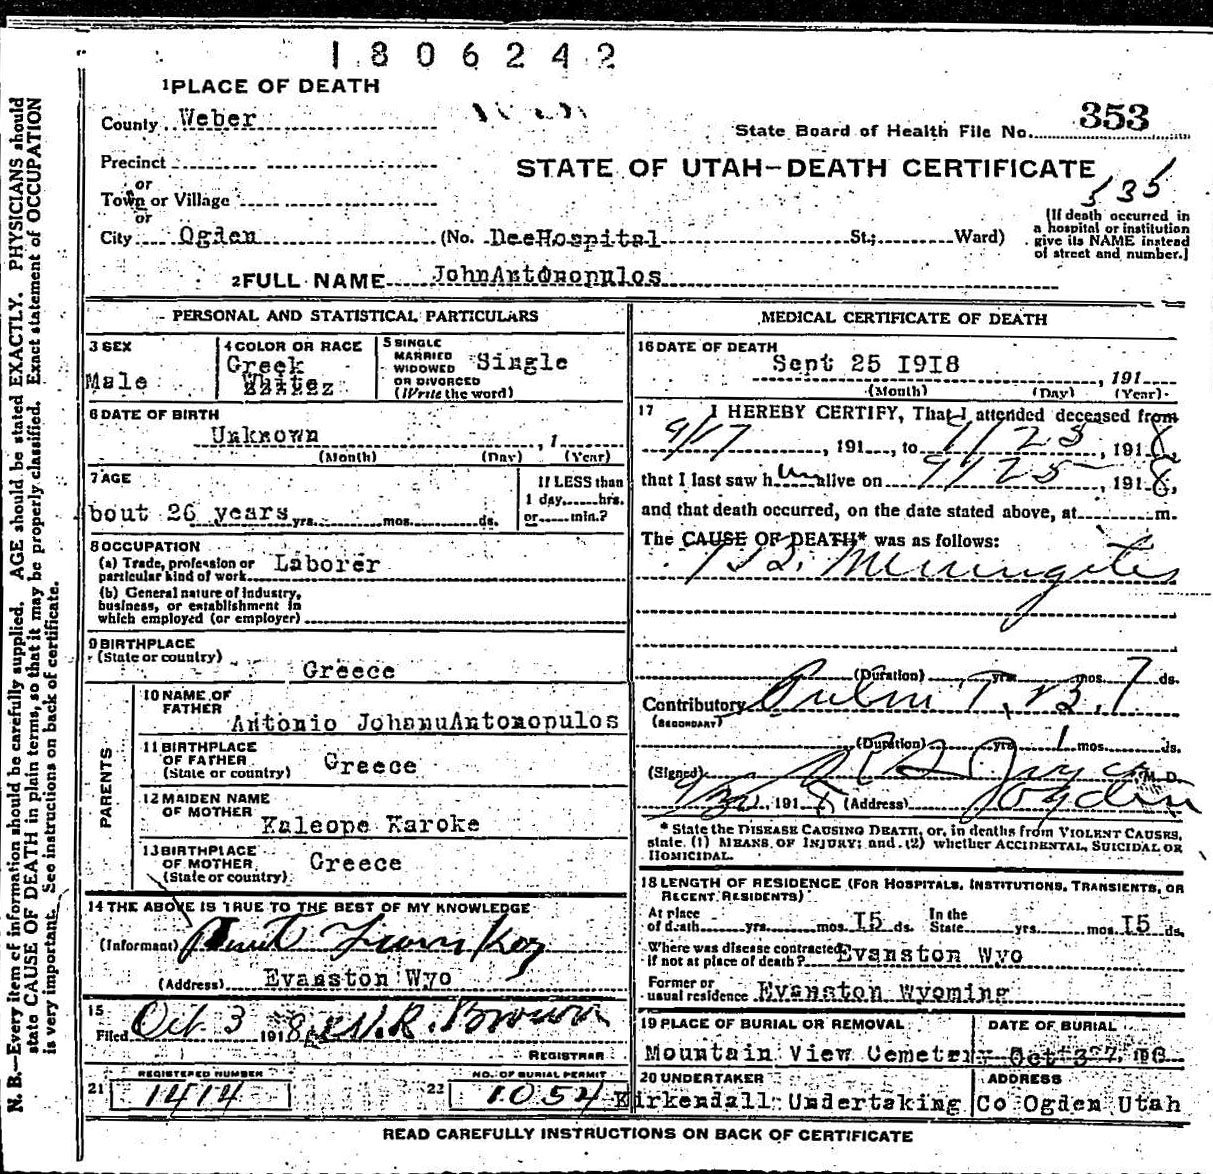 1806242
1 PLACE OF DEATH
County Weber
State Board of Health File No. 353
Precinct
STATE OF UTAH—DEATH CERTIFICATE
535
or
Town or Village
or
City Ogden (No. DeeHospital St.; Ward)
[If death occurred in
a hospital or institution
give its NAME instead
of street and number.]
2 FULL NAME JohnAntonopulos
PERSONAL AND STATISTICAL PARTICULARS
3 SEX
Male
4 COLOR OR RACE
Greek
White
5 SINGLE
MARRIED
WIDOWED
OR DIVORCED
(Write the word)
Single
6 DATE OF BIRTH
Unknown , 1
(Month) (Day) (Year)
7 AGE
bout 26 years yrs. mos. ds.
If LESS than
1 day, hrs.
or min.?
8 OCCUPATION
(a) Trade, profession or
particular kind of work Laborer
(b) General nature of industry,
business, or establishment in
which employed (or employer)
9 BIRTHPLACE
(State or country)
Greece
PARENTS
10 NAME OF
FATHER
Antonio JohanuAntonopulos
11 BIRTHPLACE
OF FATHER
(State or country) Greece
12 MAIDEN NAME
OF MOTHER
Kaleope Karoke
13 BIRTHPLACE
OF MOTHER
(State or country) Greece
14 THE ABOVE IS TRUE TO THE BEST OF MY KNOWLEDGE
(Informant)
(Address) Evanston Wyo
15
Filed Oct 3 1918 W. R. Brown
REGISTRAR
REGISTERED NUMBER
21 1414
NO. OF BURIAL PERMIT
22 1054
MEDICAL CERTIFICATE OF DEATH
16 DATE OF DEATH
Sept 25 1918 , 191
(Month) (Day) (Year)
17 I HEREBY CERTIFY, That I attended deceased from
9/17 , 191 , to 9/25 , 1918,
that I last saw him alive on 9/25 , 1918,
and that death occurred, on the date stated above, at m.
The CAUSE OF DEATH* was as follows:
TB. Meningites
(Duration) yrs. mos. 7 ds.
Contributory Pulm T.B.
(SECONDARY)
(Duration) yrs. 1 mos. ds.
(Signed) Joyce M. D.
9/30, 1918 (Address) Ogden
* State the DISEASE CAUSING DEATH, or, in deaths from VIOLENT CAUSES,
state (1) MEANS OF INJURY; and (2) whether ACCIDENTAL, SUICIDAL OR
HOMICIDAL.
18 LENGTH OF RESIDENCE (FOR HOSPITALS, INSTITUTIONS, TRANSIENTS, OR
RECENT RESIDENTS)
At place
of death yrs. mos. 15 ds. In the
State yrs. mos. 15 ds.
Where was disease contracted
if not at place of death? Evanston Wyo
Former or
usual residence Evanston Wyoming
19 PLACE OF BURIAL OR REMOVAL
Mountain View Cemetery
DATE OF BURIAL
Oct 3rd, 1918
20 UNDERTAKER
Kirkendall Undertaking Co
ADDRESS
Ogden Utah
READ CAREFULLY INSTRUCTIONS ON BACK OF CERTIFICATE
N. B.—Every item of information should be carefully supplied. AGE should be stated EXACTLY. PHYSICIANS should
state CAUSE OF DEATH in plain terms, so that it may be properly classified. Exact statement of OCCUPATION
is very important. See instructions on back of certificate.